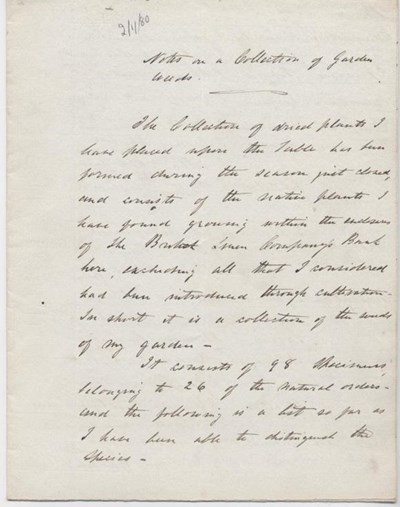 2/1/80
Notes on a Collection of Garden
Weeds.
The Collection of dried plants I
have placed upon the Table has been
formed during the season just closed,
and consists of the native plants I
have found growing within the enclosure
of the British Linen Company's Bank
here, excluding all that I considered
had been introduced through cultivation -
In short it is a collection of the weeds
of my garden -
It consists of 98 Specimens,
belonging to 26 of the natural orders -
and the following is a list so far as
I have been able to distinguish the
Species -